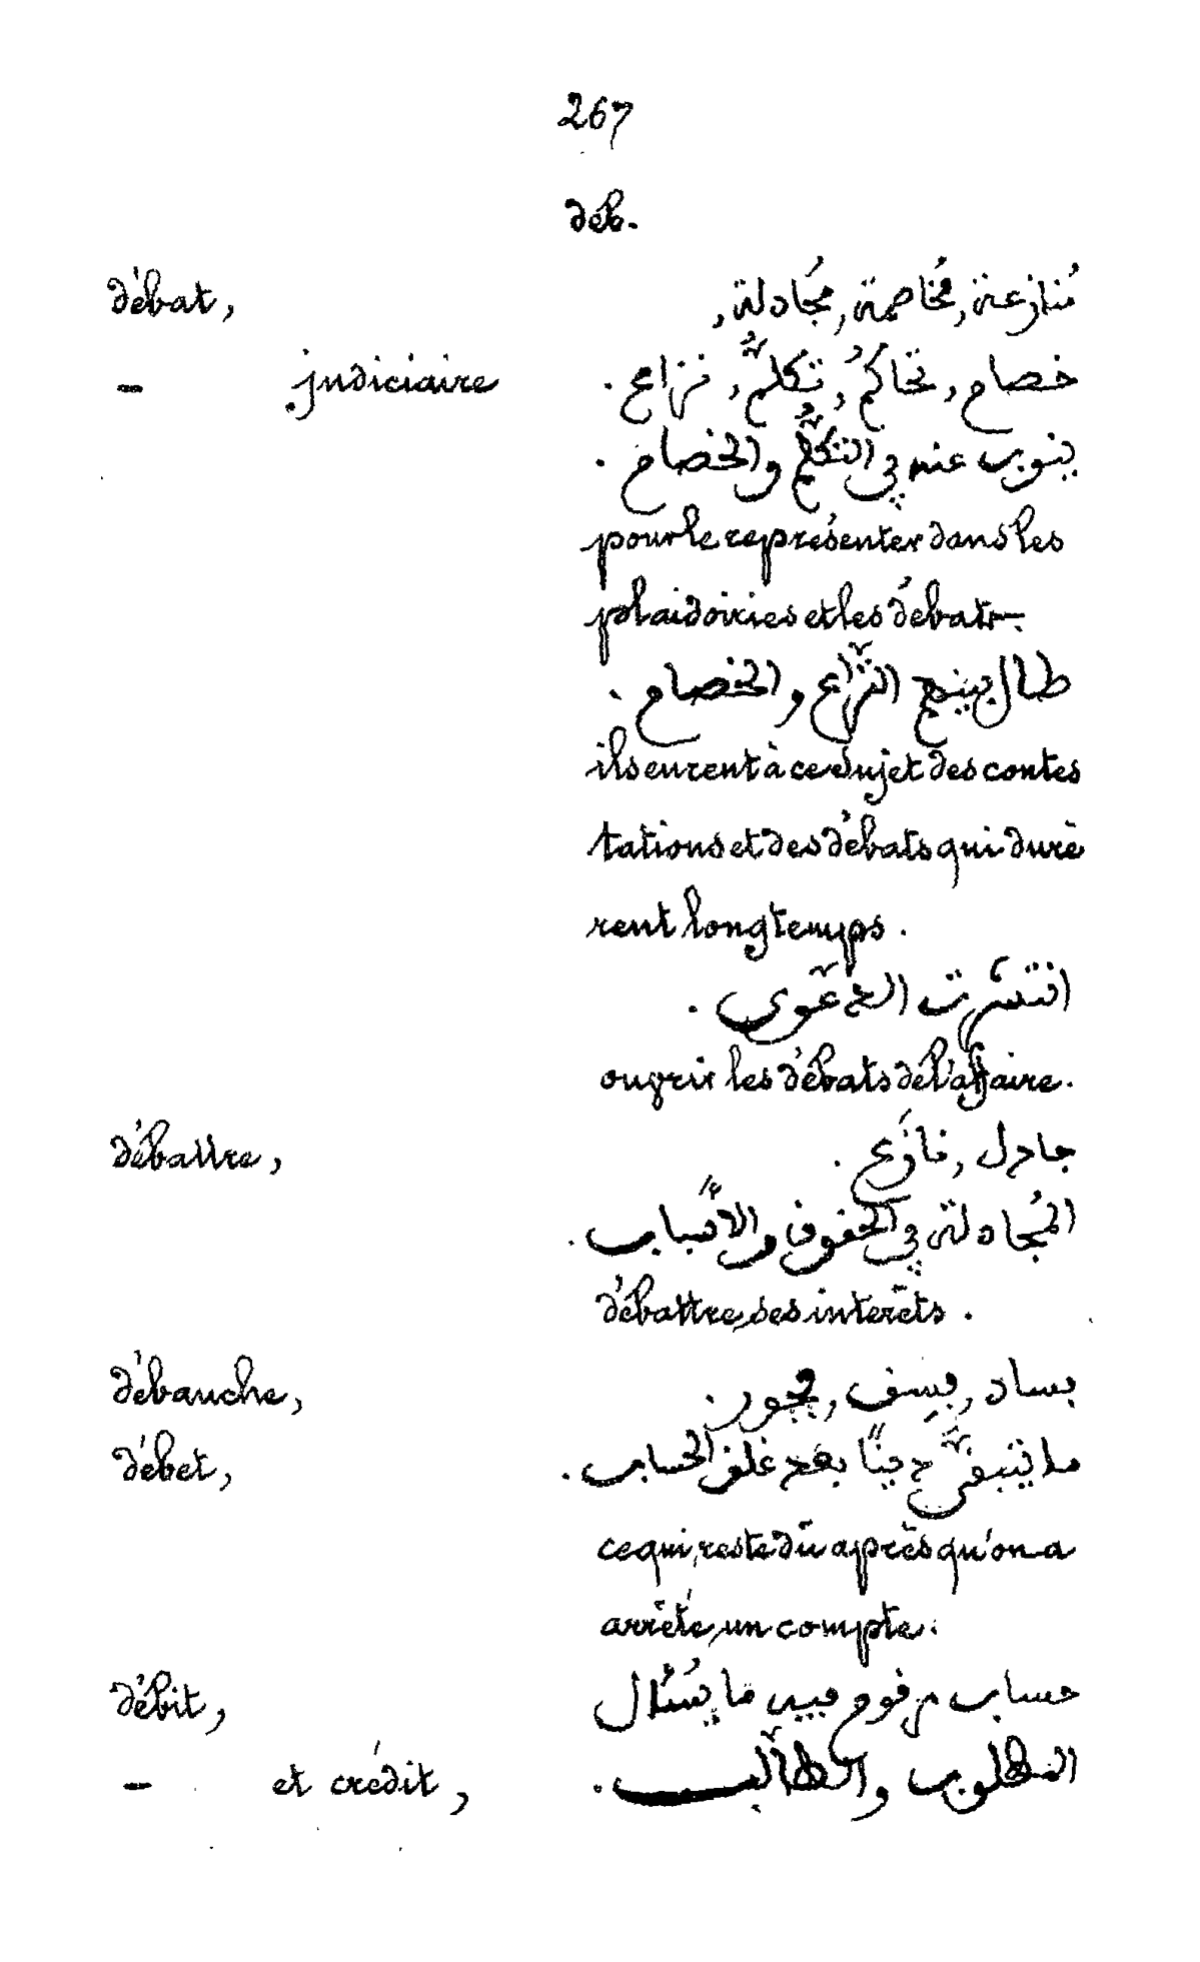 267
déb.
débat, مُنازعة, مُخاصمة, مُجادلة,
— judiciaire خصام, تحاكُمٌ, تكلُّمٌ, نزاع.
ينوب عنه في التكلُّم والخصام.
pour le représenter dans les
plaidoiries et les débats.
طال بينهم النّزاع والخصام.
ils eurent à ce sujet des contes
tations et des débats qui durè
rent longtemps.
انتشرت الدّعوى.
ouvrir les débats de l'affaire.
débattre, جادل, نازَع.
المُجادلة في الحقوق والأسباب.
débattre ses intérêts.
débauche, فساد, فِسق, فجور.
débet, ما يتبقّى دينًا بعد غلق الحساب.
ce qui reste dû après qu'on a
arrêté un compte.
débit, حساب مرقوم فيه ما يُسْئال
— et crédit, المطلوب والطّالب.